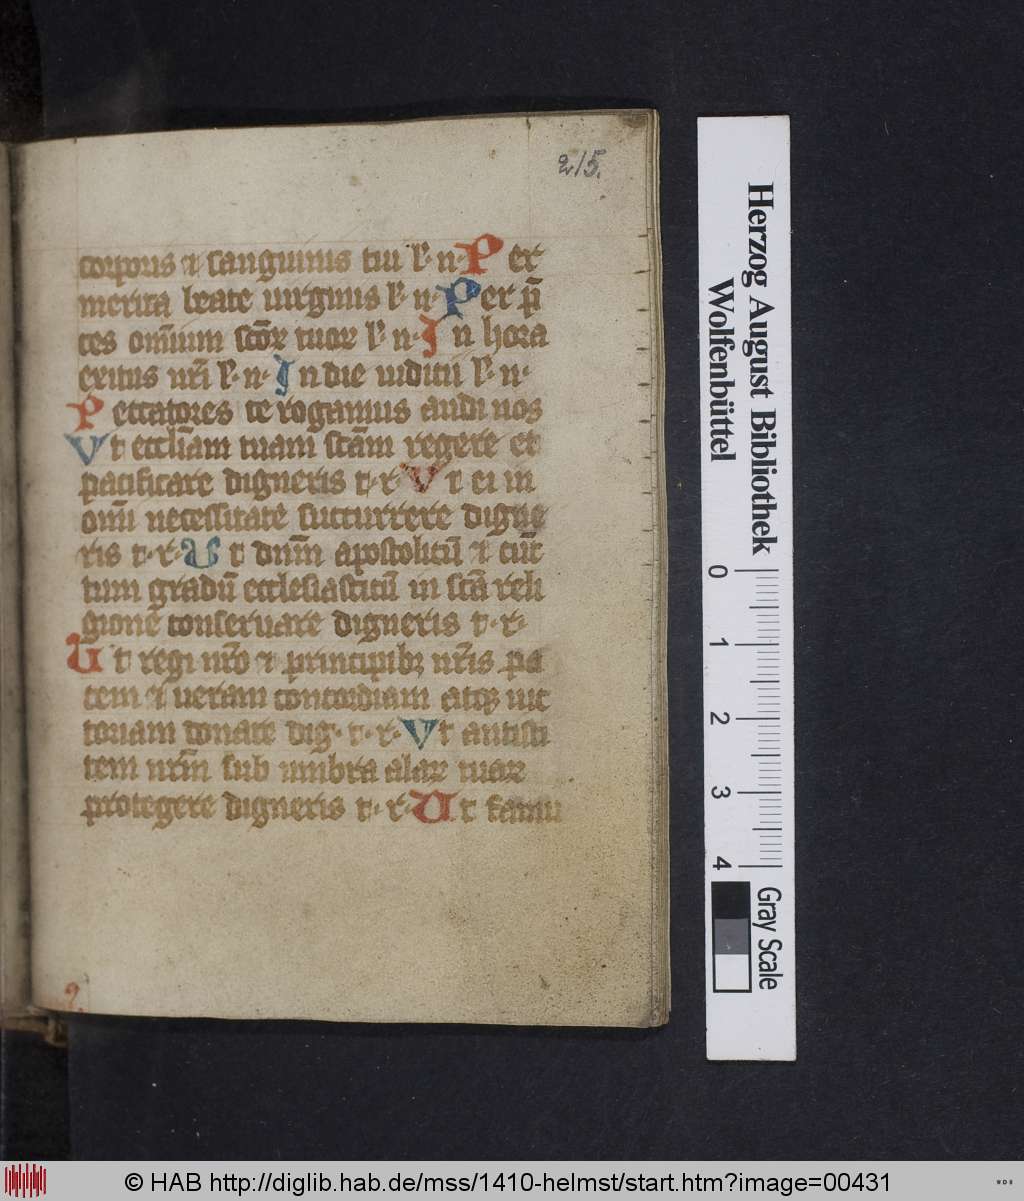 215.
corporis ⁊ sanguinis tui l'· n· Per
merita beate uirginis l'· n· Per p̄
ces om̄ium sc̄oꝝ tuoꝝ l'· n· In hora
exitus nr̄i l'· n· In die iudicii l'· n·
Peccatores te rogamus audi nos
Vt eccl'iam tuam sc̄am regere et
pacificare digneris t· r· Vt ei in
om̄i necessitate succurrere digne
ris t· r· Ut dnm̄ apostolicū ⁊ cūc
tum gradū ecclesiasticū in sc̄a reli
gione conseruare digneris t· r·
Ut regi nr̄o ⁊ principibꝫ nr̄is pa
cem ⁊ ueram concordiam atqꝫ uic
toriam donare dig· t· r· Vt antisti
tem nrm̄ sub umbra alaꝝ tuaꝝ
protegere digneris t· r· Ut famu
Herzog August Bibliothek
Wolfenbüttel
0 1 2 3 4
Gray Scale
© HAB http://diglib.hab.de/mss/1410-helmst/start.htm?image=00431